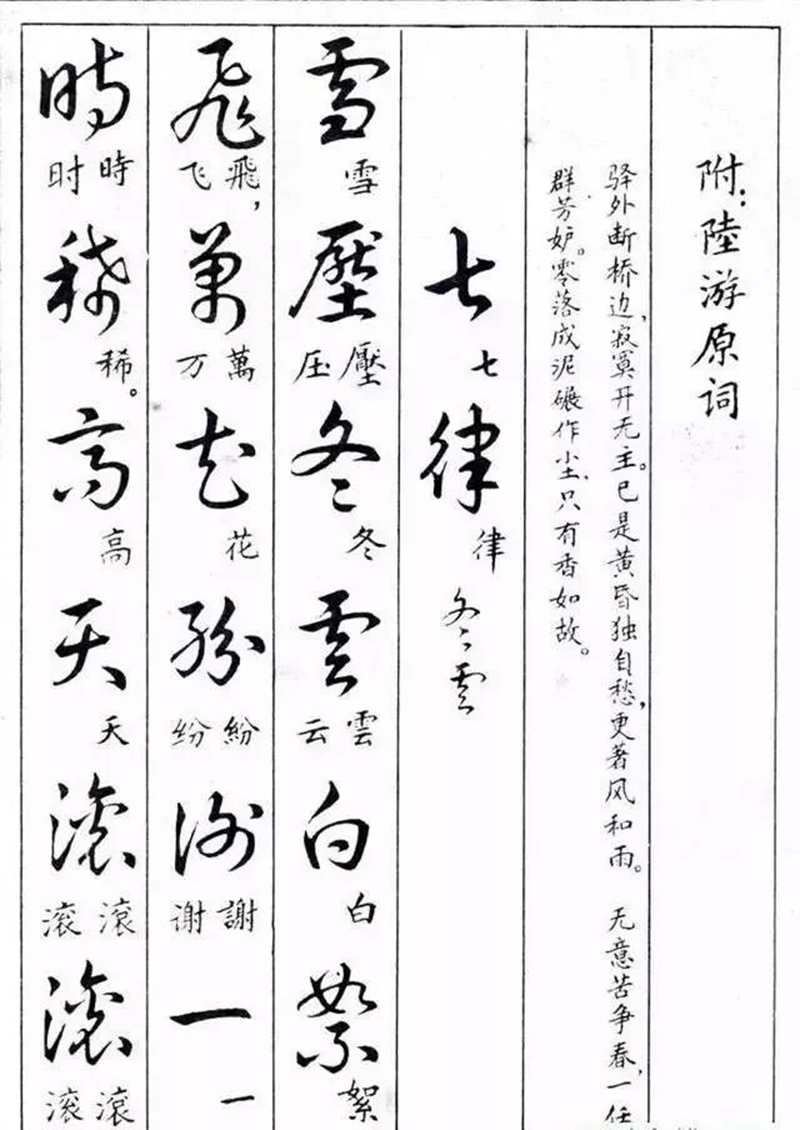 附：陸游原词
驿外断桥边，寂寞开无主。已是黄昏独自愁，更著风和雨。 无意苦争春，一任
群芳妒。零落成泥碾作尘，只有香如故。
七律 冬雲
七 律
雪壓冬雲白絮
雪 压壓 冬 云雲 白 絮
飛萬花紛謝一
飞飛， 万萬 花 纷紛 谢謝 一
時稀高天滾滾
时時 稀。 高 天 滚滾 滚滾